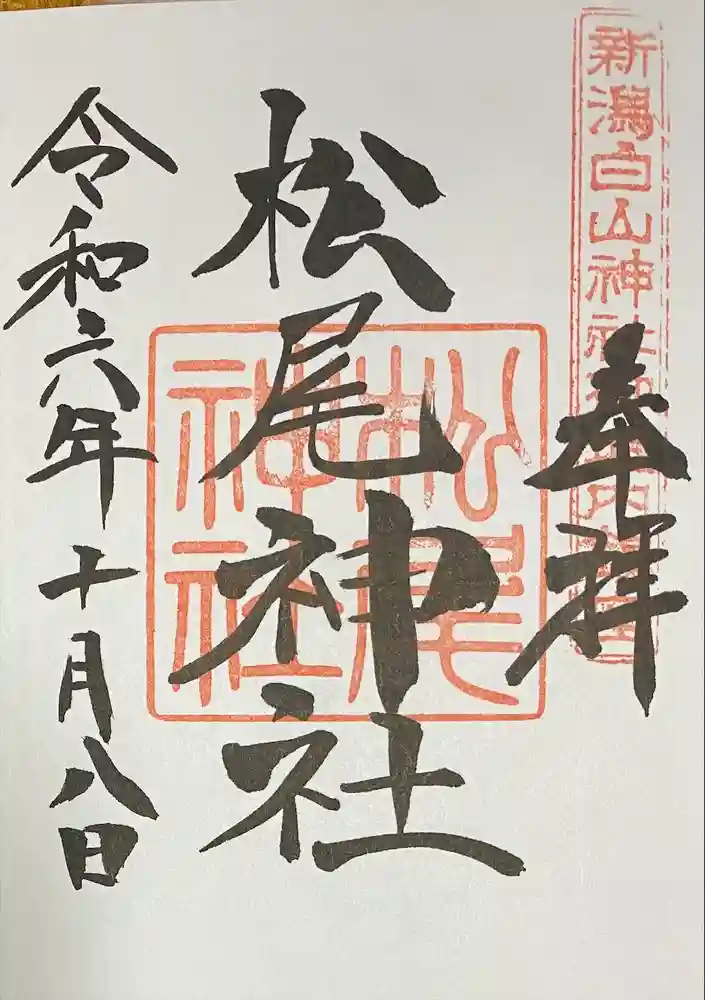 新潟白山神社御境内鎮座
奉拝
松尾神社
松尾
神社
令和六年十月八日